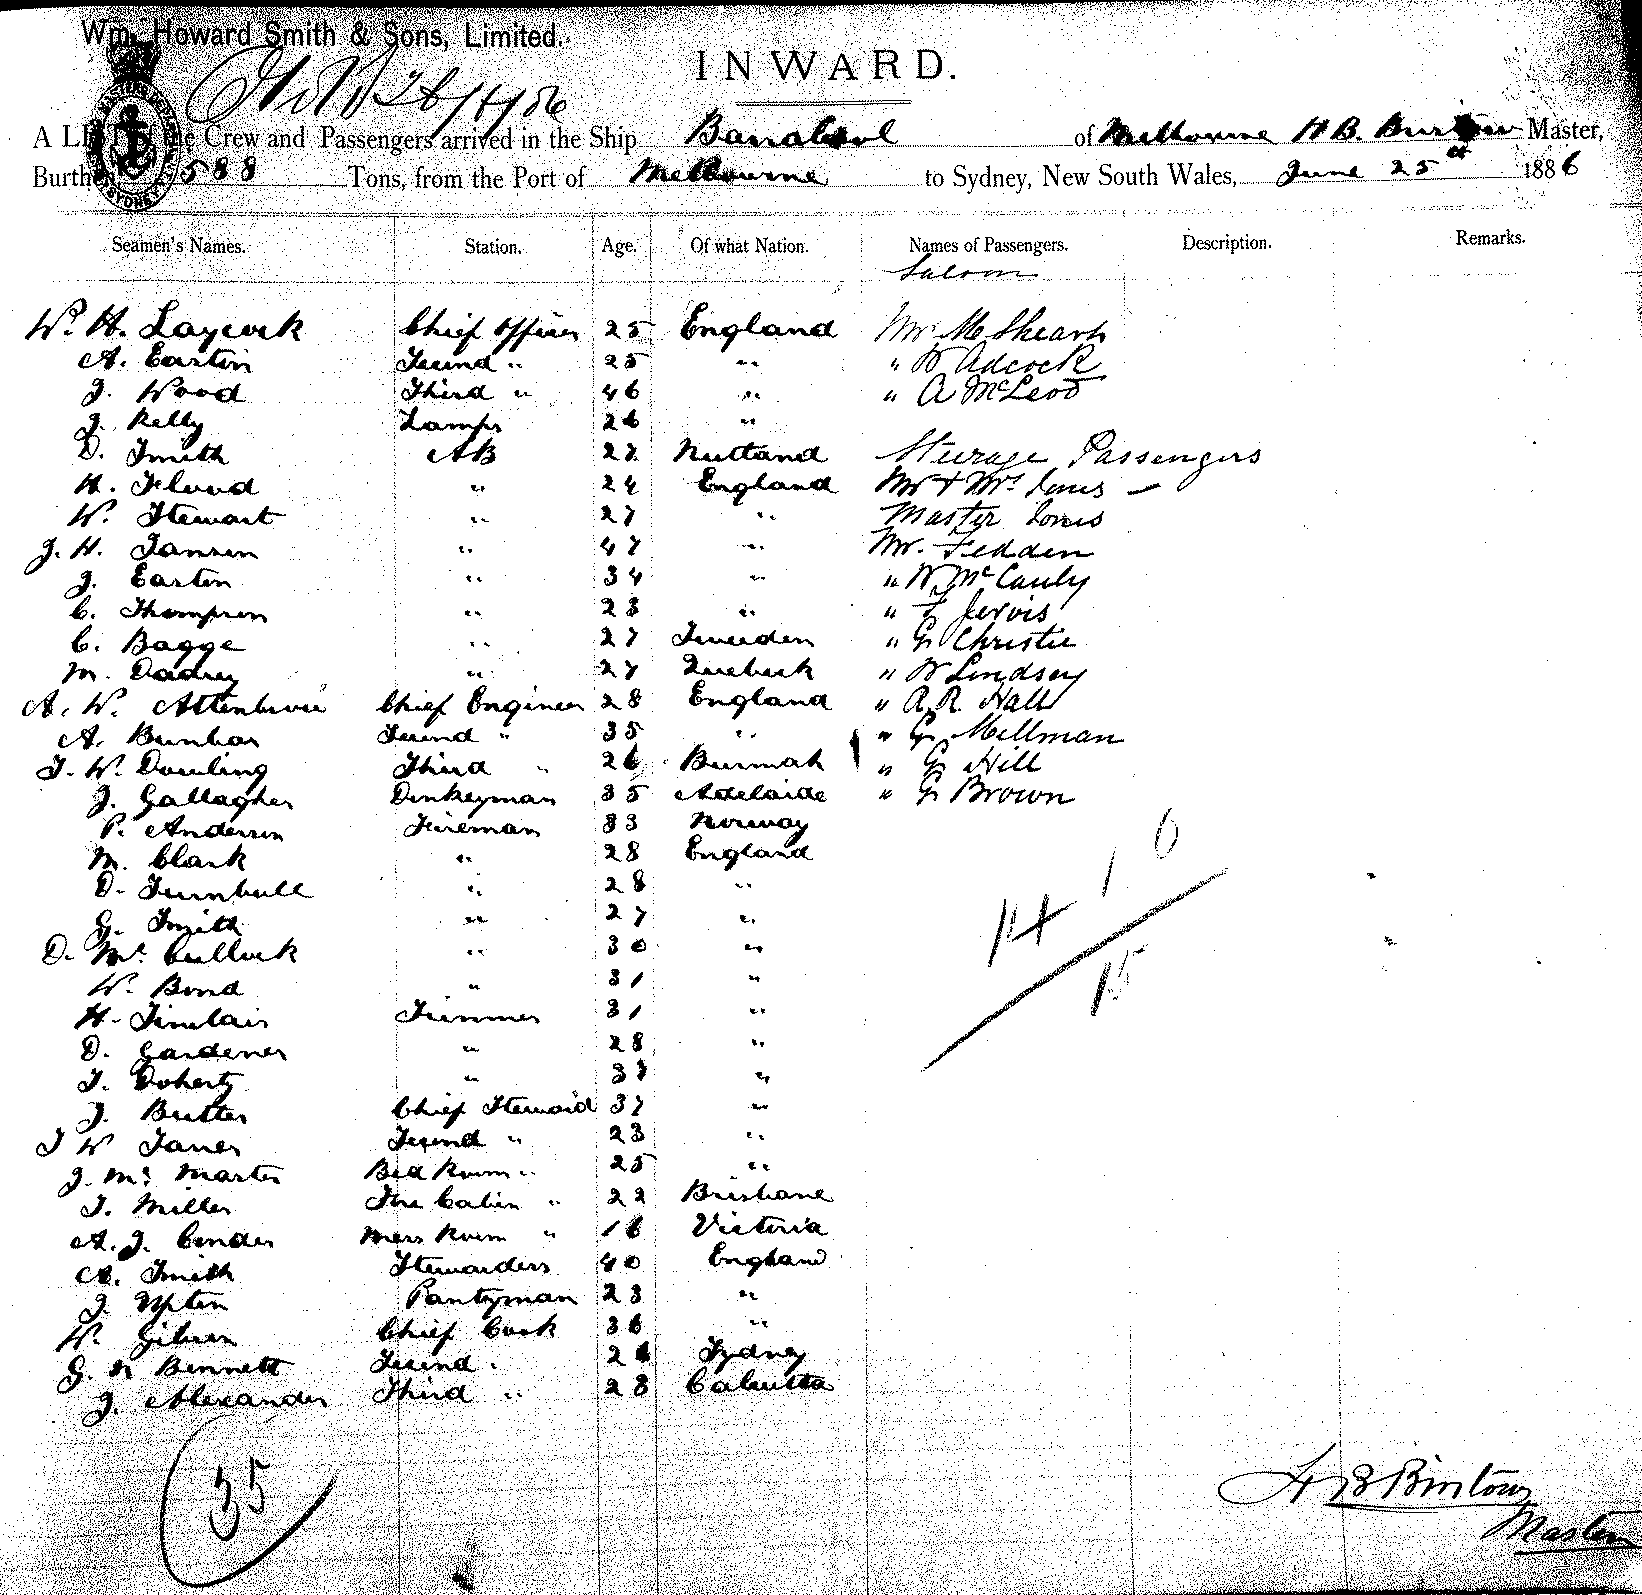 Wm. Howard Smith & Sons, Limited.
INWARD.
A LIST of the Crew and Passengers arrived in the Ship of Melbourne H B. Burton Master,
Burthen 588 Tons, from the Port of Melbourne to Sydney, New South Wales, June 25th 1886
Seamen's Names. Station. Age. Of what Nation. Names of Passengers. Description. Remarks.
Saloon
W. H. Laycock Chief Officer 25 England Mr
A. Easton Second " 25 " " W Adcock
J. Wood Third " 46 " " A McLeod
J. Kelly Lamps 26 "
D. Smith AB 22 Steerage Passengers
H. Flood " 24 England Mr & Mrs Jones
W. Stewart " 27 " Master Jones
J. H. Jansen " 47 " Mr. Fedden
J. Easton " 34 " " W McCauly
C. Thompson " 23 " " F Jervis
C. Bagge " 27 Sweeden " G Christie
M. " 27 Quebeck " W Lindsey
A. W. Chief Engineer 28 England " A. R. Hall
A. Bunhar Second " 35 " " G Millman
J. W. Dowling Third " 26 Burmah " G Hill
J. Gallagher Donkeyman 35 Adelaide " G Brown
P. Anderson Fireman 33 Norway
M. Clark " 28 England
D. Turnbull " 28 "
G. Smith " 27 "
D. Mc Cullock " 30 "
W. Bond " 31 "
H. Sinclair Trimmer 31 "
D. Gardener " 28 "
J. Doherty " 37 "
J. Butter Chief Steward 37 "
J W Janes Second " 23 "
J. Mc Master Bed Room " 25 "
J. Miller Fore Cabin " 22 Brisbane
A. J. Conder Mess Room " 16 Victoria
A. Smith Stewardess 40 England
J. Upton Pantryman 23 "
W. Gibson Chief Cook 36 "
G. H Bennett Second " 26 Sydney
J. Alexander Third " 28 Calcutta
14 1 0
15
35
H B Burton
Master